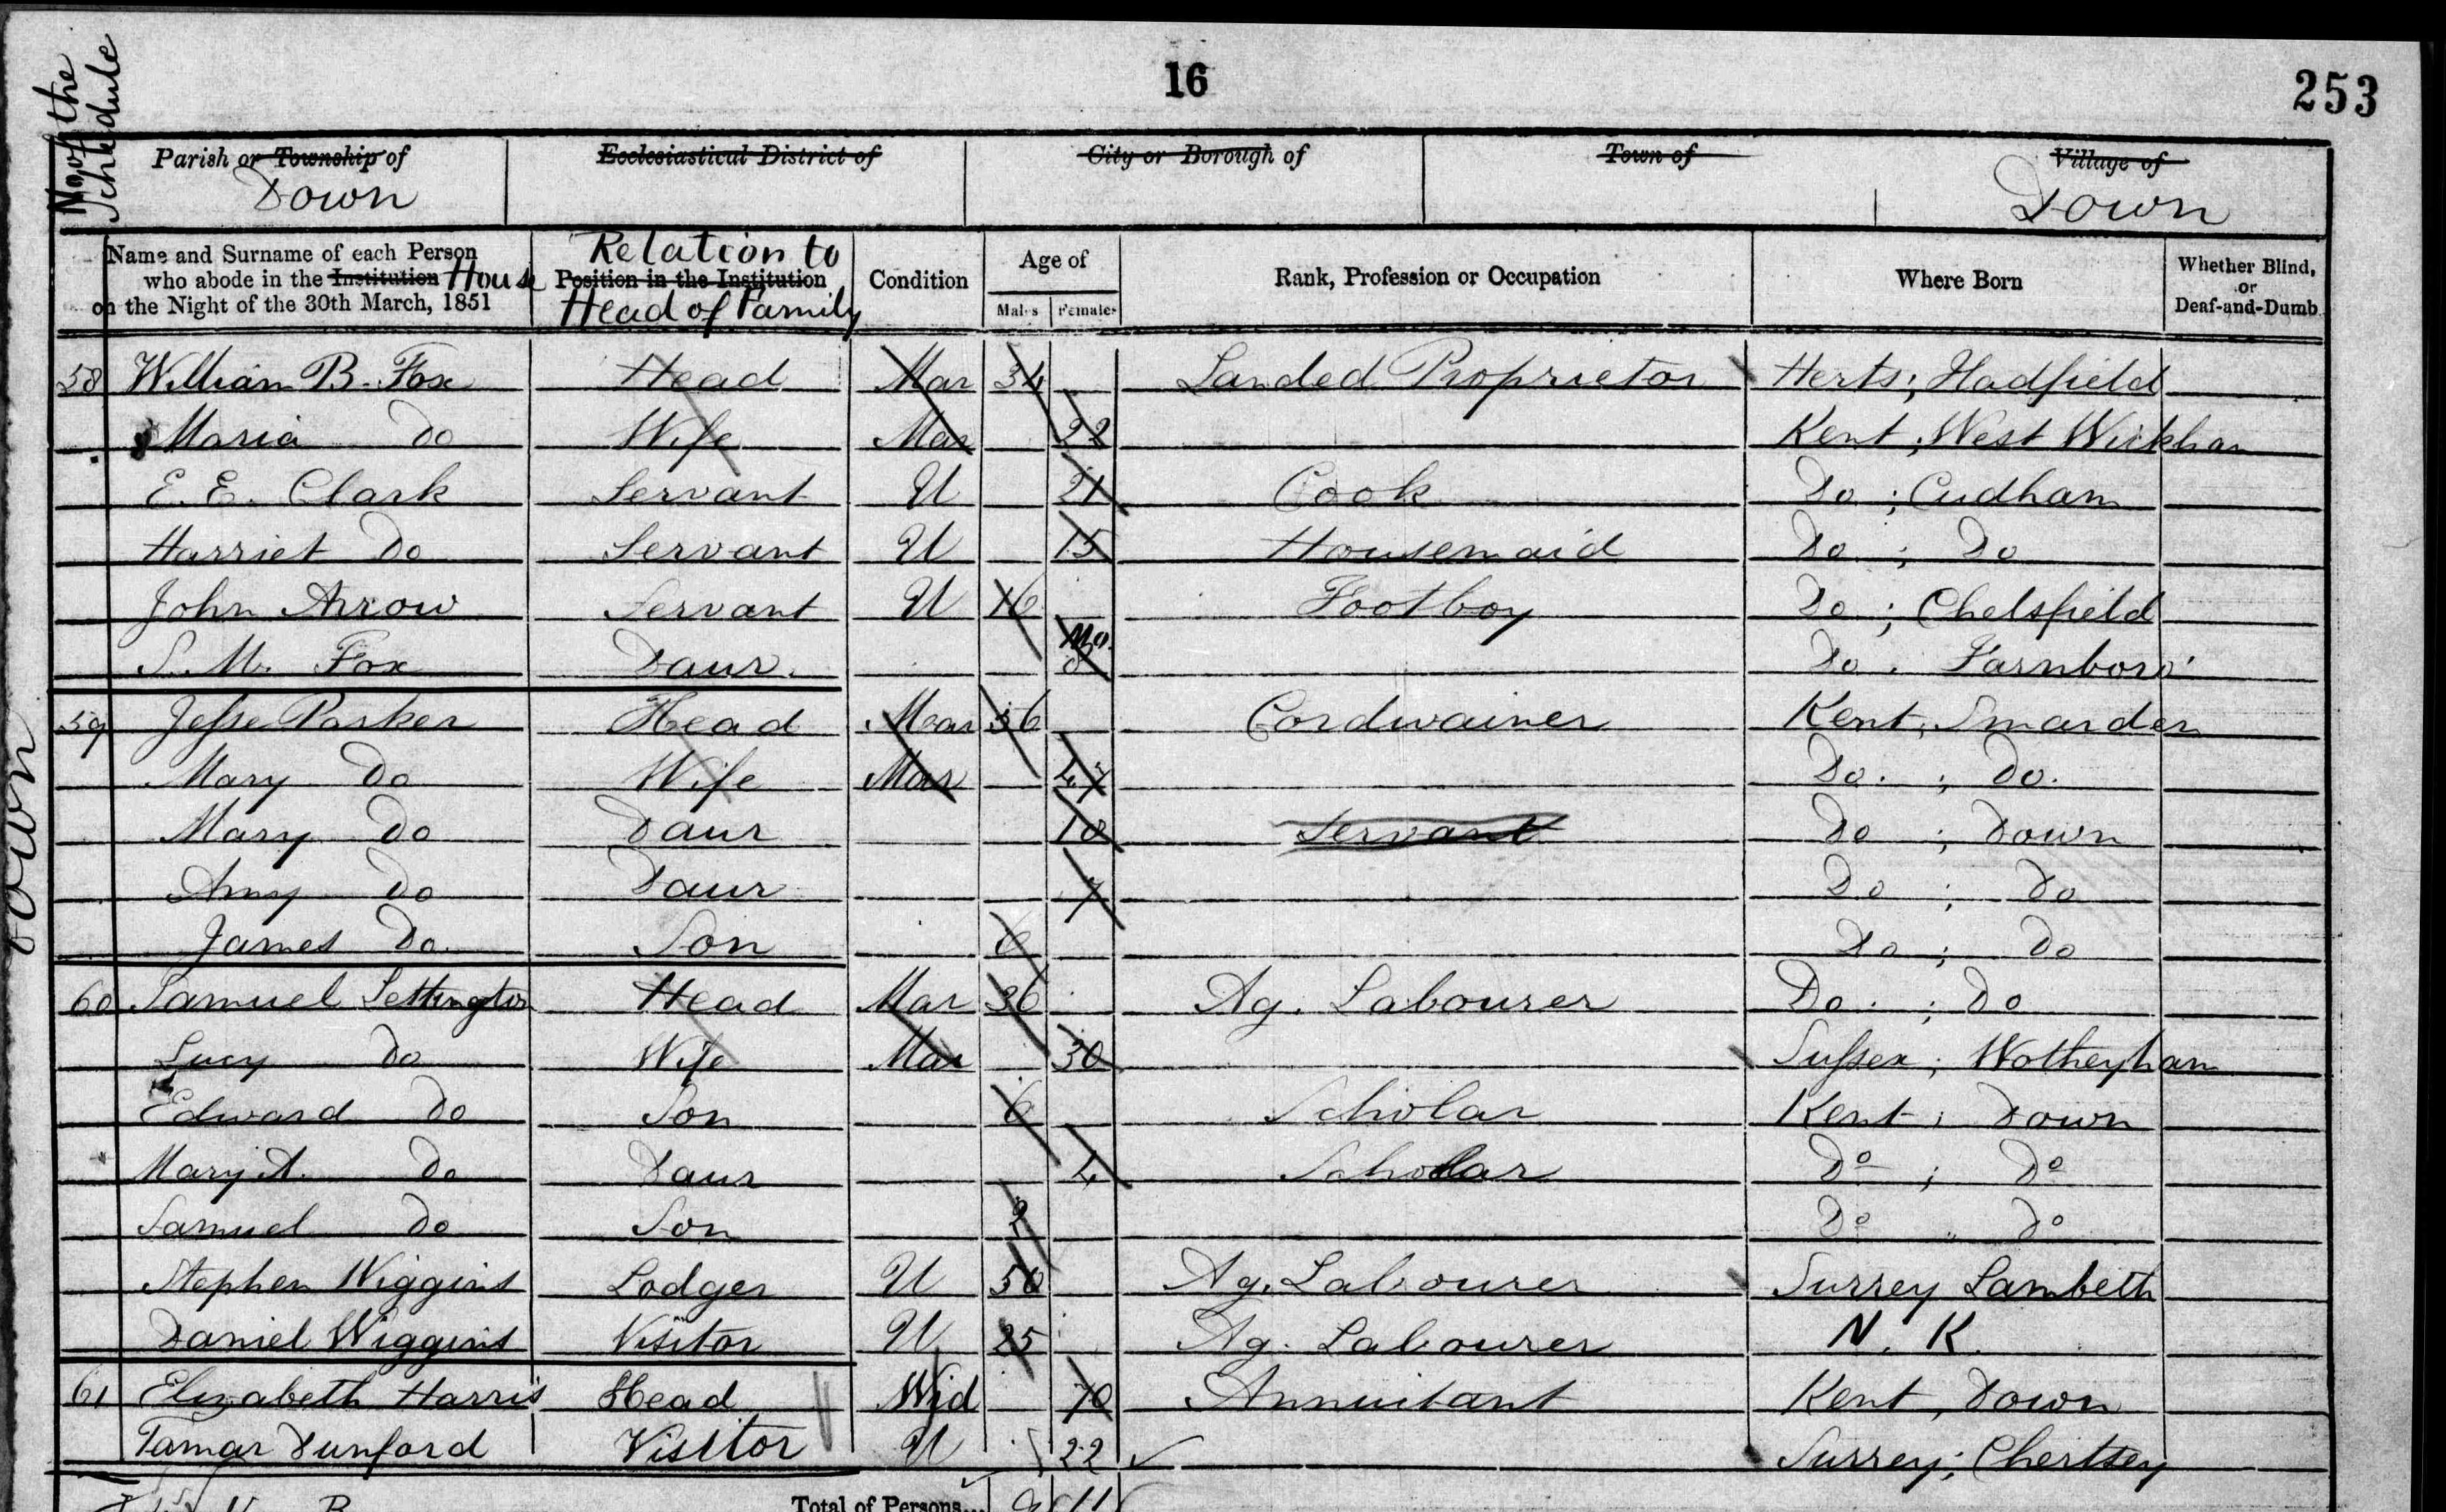 16
253
No of the Schedule
Parish or Township of Down
Ecclesiastical District of
City or Borough of
Town of
Village of Down
Name and Surname of each Person who abode in the Institution House on the Night of the 30th March, 1851
Relation to Position in the Institution Head of Family
Condition
Age of Males Females
Rank, Profession or Occupation
Where Born
Whether Blind, or Deaf-and-Dumb
58 William B. Fox Head Mar 34 Landed Proprietor Herts; Hadfield
Maria Do Wife Mar 22 Kent; West Wickham
E. E. Clark Servant U 21 Cook Do; Cudham
Harriet Do Servant U 15 Housemaid Do; Do
John Arrow Servant U 16 Footboy Do; Chelsfield
S. M. Fox Daur. Mo. Do. Farnboro'
59 Jesse Parker Head Mar 36 Cordwainer Kent; Smarden
Mary Do Wife Mar 47 Do.; Do.
Mary Do Daur 10 Servant Do; Down
Amy Do Daur 7 Do; Do
James Do. Son 6 Do; Do
60 Samuel Lettington Head Mar 36 Ag. Labourer Do.; Do
Lucy Do Wife Mar 30 Sussex; Wotheyham
Edward Do Son 6 Scholar Kent; Down
Mary A. Do Daur 4 Scholar Do; Do
Samuel Do Son 2 Do Do
Stephen Wiggins Lodger U 50 Ag. Labourer Surrey Lambeth
Daniel Wiggins Visitor U 25 Ag. Labourer N. K.
61 Elizabeth Harris Head Wid 70 Annuitant Kent, Down
Tamar Dunford Visitor U 22 Surrey; Chertsey
Total of Persons... 9 11
Down